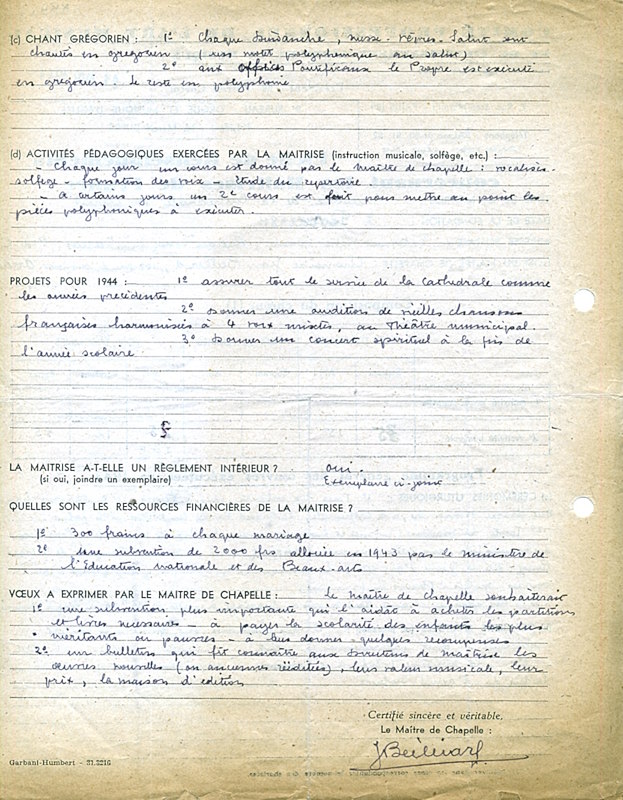 (c) CHANT GRÉGORIEN : 1º Chaque Dimanche, messe - vêpres - Salut sont
chantés en grégorien (sous motet polyphonique au salut)
2º aux offices Pontificaux le Propre est exécuté
en grégorien. le reste en polyphonie
(d) ACTIVITÉS PÉDAGOGIQUES EXERCÉES PAR LA MAITRISE (instruction musicale, solfège, etc.) :
- Chaque jour un cours est donné par le maître de chapelle : vocalises -
solfège - formation des voix - étude du répertoire.
- a certains jours un 2e cours est fait pour mettre au point les
pièces polyphoniques à exécuter.
PROJETS POUR 1944 : 1º assurer tout le service de la Cathédrale comme
les années précédentes
2º Donner une audition de vieilles chansons
françaises harmonisées à 4 voix mixtes, au Théâtre municipal.
3º Donner un concert spirituel à la fin de
l'année scolaire
LA MAITRISE A-T-ELLE UN RÈGLEMENT INTÉRIEUR ? oui.
(si oui, joindre un exemplaire) Exemplaire ci-joint
QUELLES SONT LES RESSOURCES FINANCIÈRES DE LA MAITRISE ?
1º 300 francs à chaque mariage
2º Une subvention de 2000 frs allouée en 1943 par le ministère de
l'Education nationale et des Beaux-arts
VŒUX A EXPRIMER PAR LE MAITRE DE CHAPELLE : le maître de chapelle souhaiterait
1º une subvention plus importante qui l'aide à acheter les partitions
et livres nécessaires - à payer la scolarité des enfants les plus
méritants ou pauvres - à leur donner quelques récompenses
2º un bulletin qui fît connaître aux Directeurs de maîtrise les
œuvres nouvelles (ou anciennes rééditées), leur valeur musicale, leur
prix, la maison d'édition
Certifié sincère et véritable,
Le Maître de Chapelle :
Garbani-Humbert - 31.3216